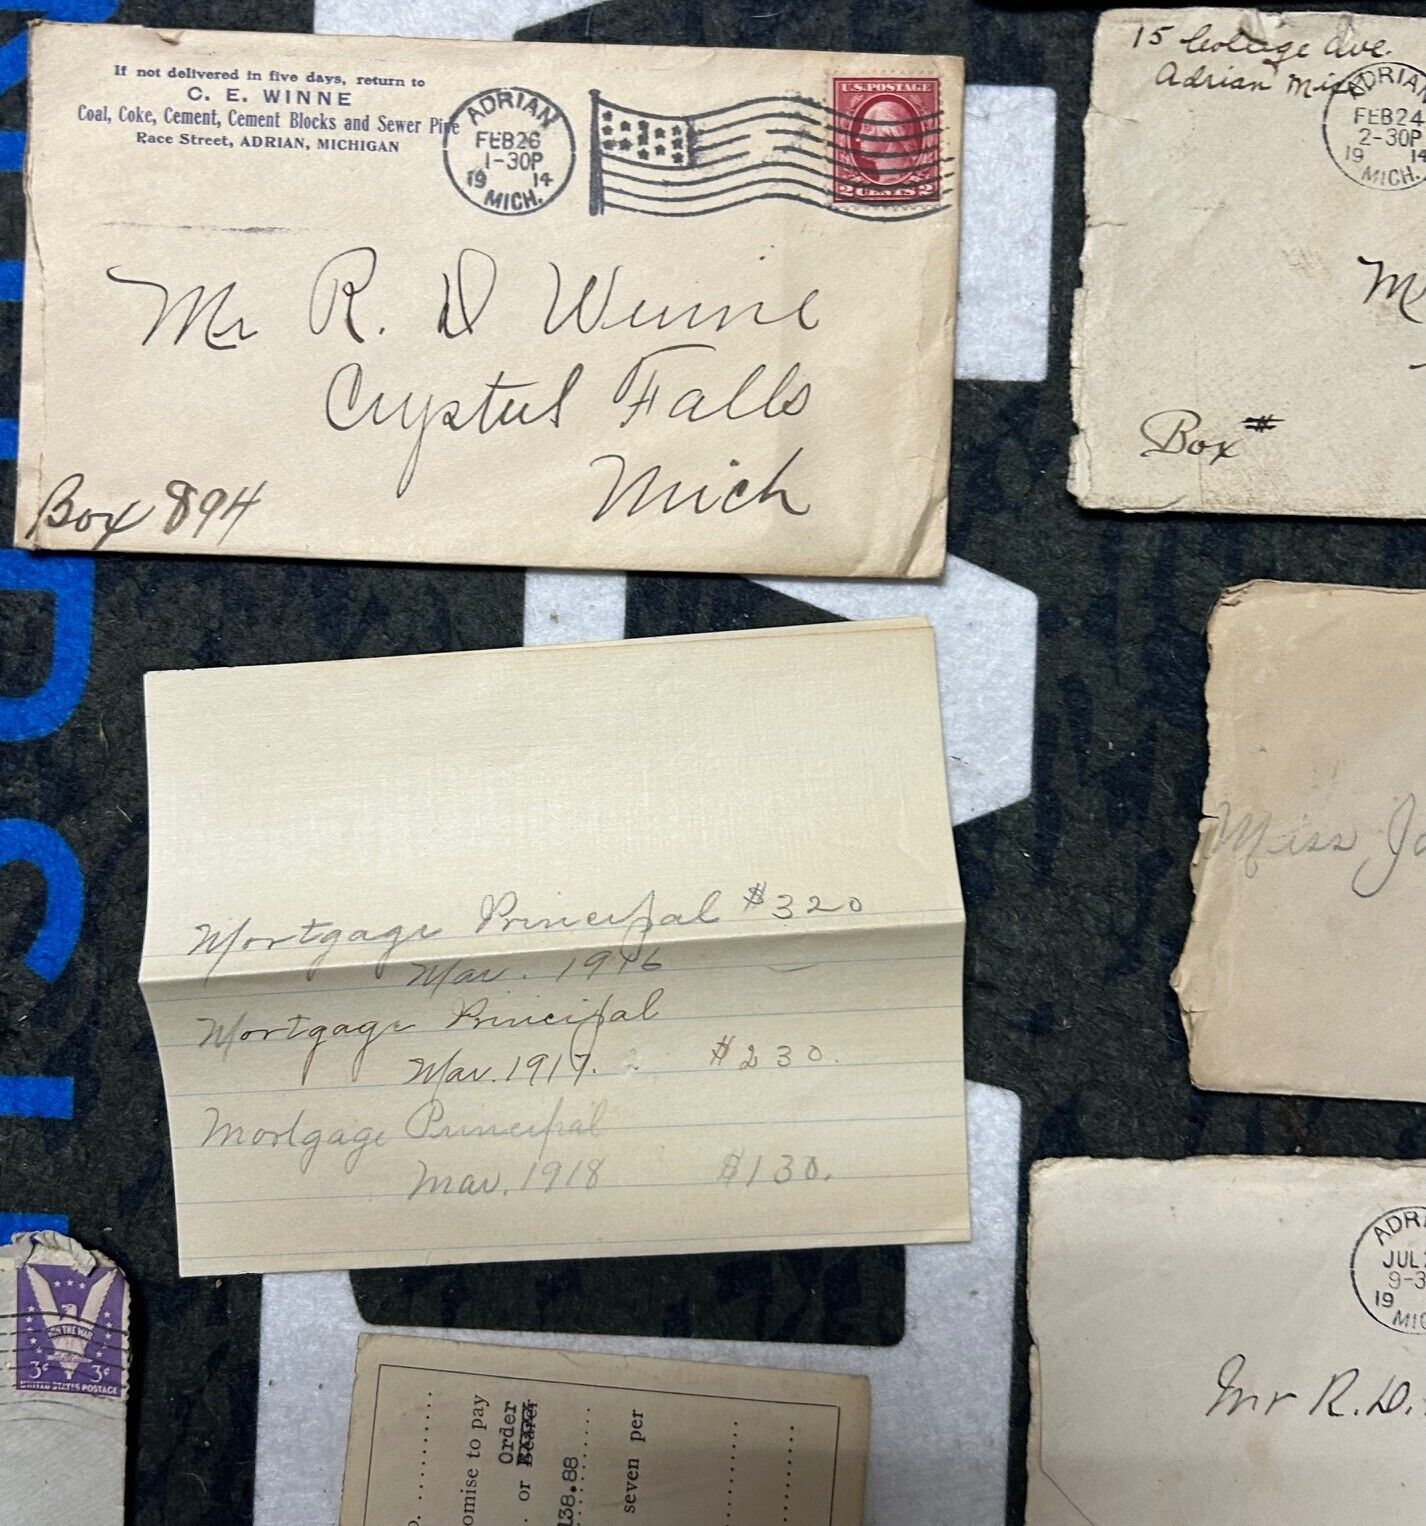 If not delivered in five days, return to
C. E. WINNE
Coal, Coke, Cement, Cement Blocks and Sewer Pipe
Race Street, ADRIAN, MICHIGAN
ADRIAN
FEB 26
1-30P
19 14
MICH.
U.S. POSTAGE
2 CENTS 2
Mr R. D Winne
Crystal Falls
Mich
Box 894
15 College Ave.
Adrian Mich
ADRIAN
FEB 24
2-30P
19 14
MICH.
M
Box #
Mortgage Principal $320
Mar. 1916
Mortgage Principal
Mar. 1917. $230.
Mortgage Principal
Mar. 1918 $130.
Miss Ja
WIN THE WAR
3¢ 3¢
UNITED STATES POSTAGE
omise to pay
or Order
Bearer
138.88
seven per
ADRI
JUL
9-3
19
MIC
Mr R. D.